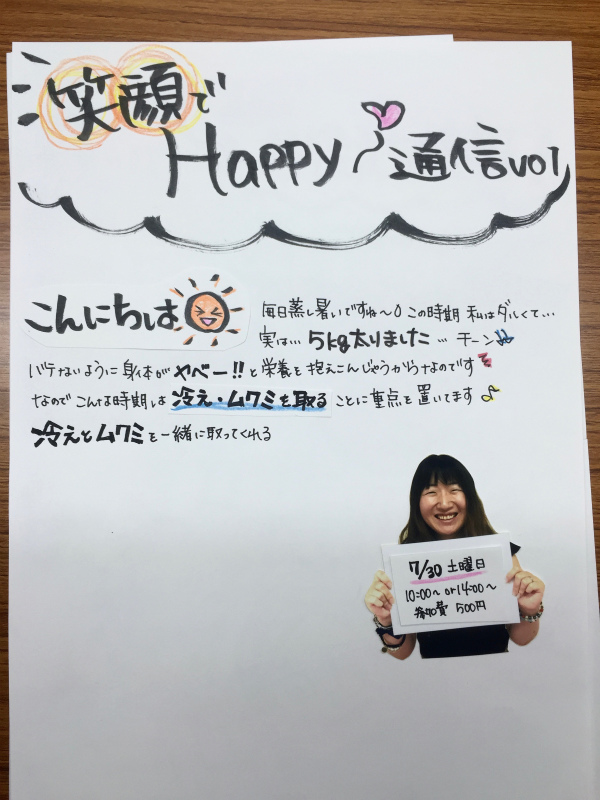 笑顔で
Happy 通信 vol
こんにちは
毎日蒸し暑いですね〜 この時期 私はダルくて…
実は… 5kg太りました … チーン
バテないように身体が ヤベー!! と栄養を抱えこんじゃうからなのです
なのでこんな時期は 冷え・ムクミを取る ことに重点を置いてます
冷えとムクミを一緒に取ってくれる
7/30 土曜日
10:00〜 or 14:00〜
参加費 500円